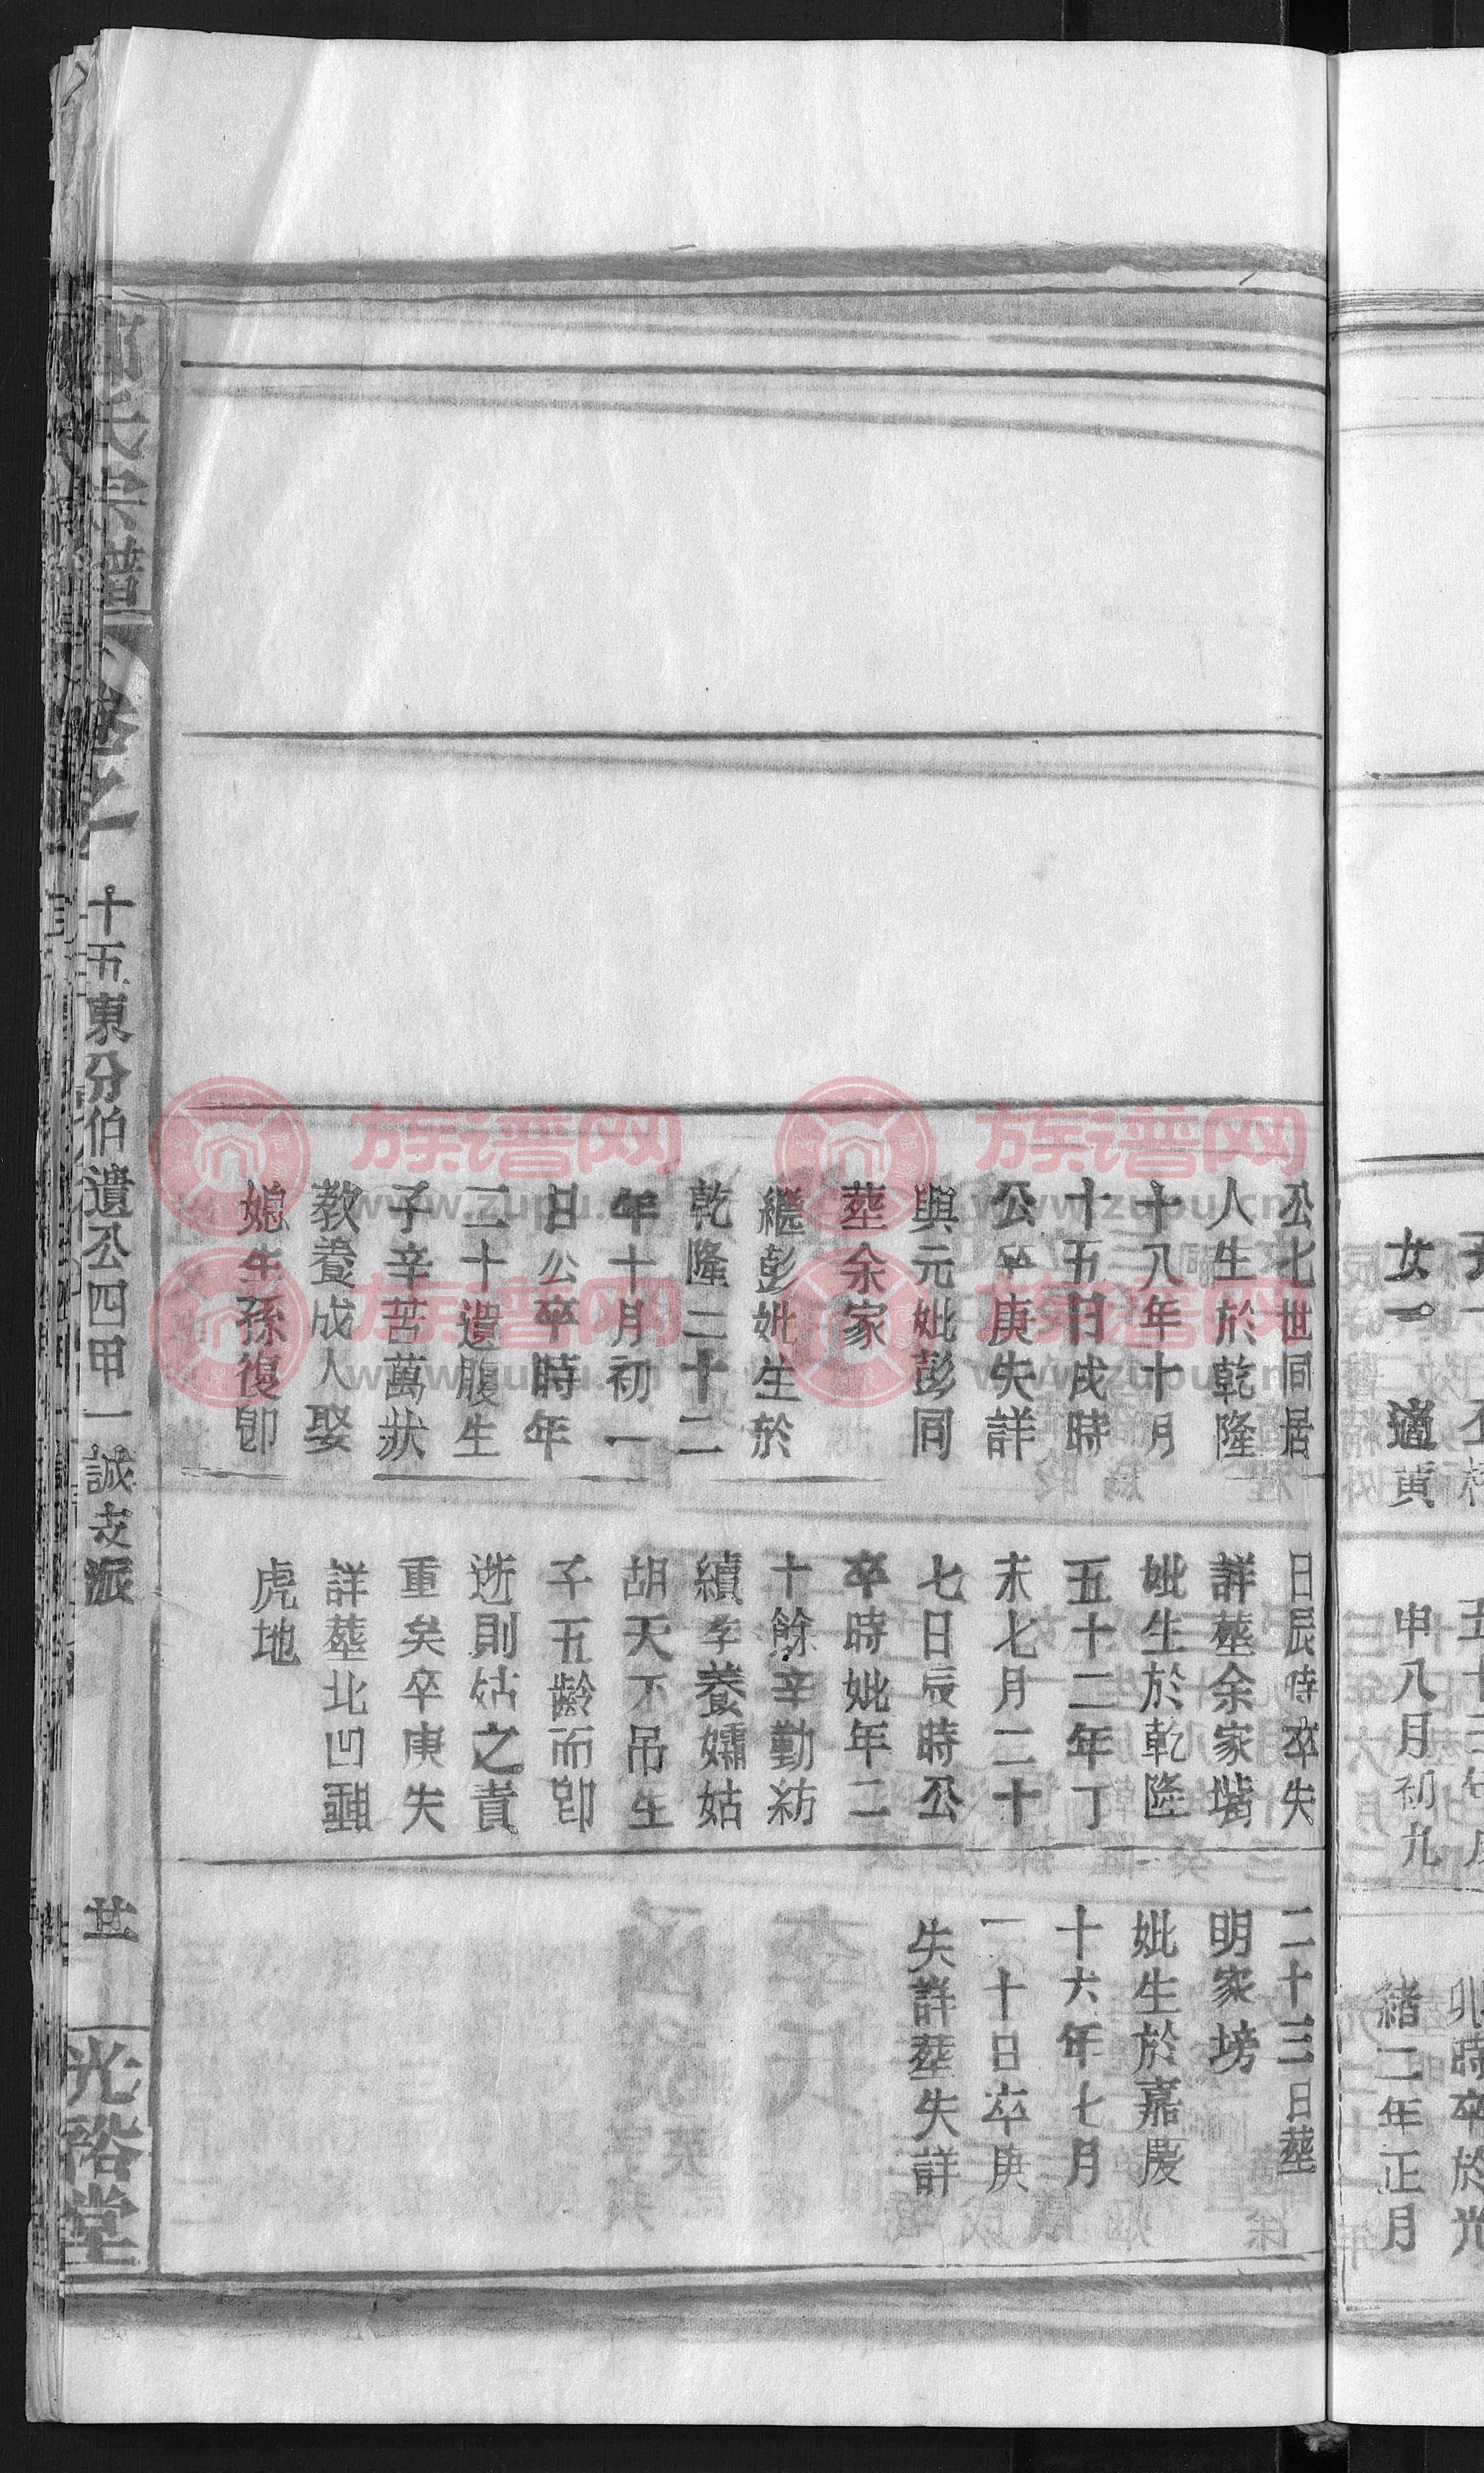 女一　適黃
申八月初九
緒二年正月
公七世同居
人生於乾隆
十八年十月
十五日戌時
公卒庚失詳
與元妣彭同
塟余家
繼彭妣生於
乾隆二十二
年十月初一
日公卒時年
二十遺腹生
子辛苦萬狀
教養成人娶
媳生孫復卽
日辰時卒失
詳塟余家
妣生於乾隆
五十二年丁
未七月二十
七日辰時公
卒時妣年二
十餘辛勤紡
續孝養孀姑
胡天不吊生
子五齡而卽
逝則姑之責
重矣卒庚失
詳塟北凹
虎地
二十三日塟
明家塝
妣生於嘉慶
十六年七月
一十日卒庚
失詳塟失詳
氏宗譜
十五東分伯遺公四甲一誠支派
光裕堂
族谱网
www.zupu.cn
族谱网
www.zupu.cn
族谱网
www.zupu.cn
族谱网
www.zupu.cn